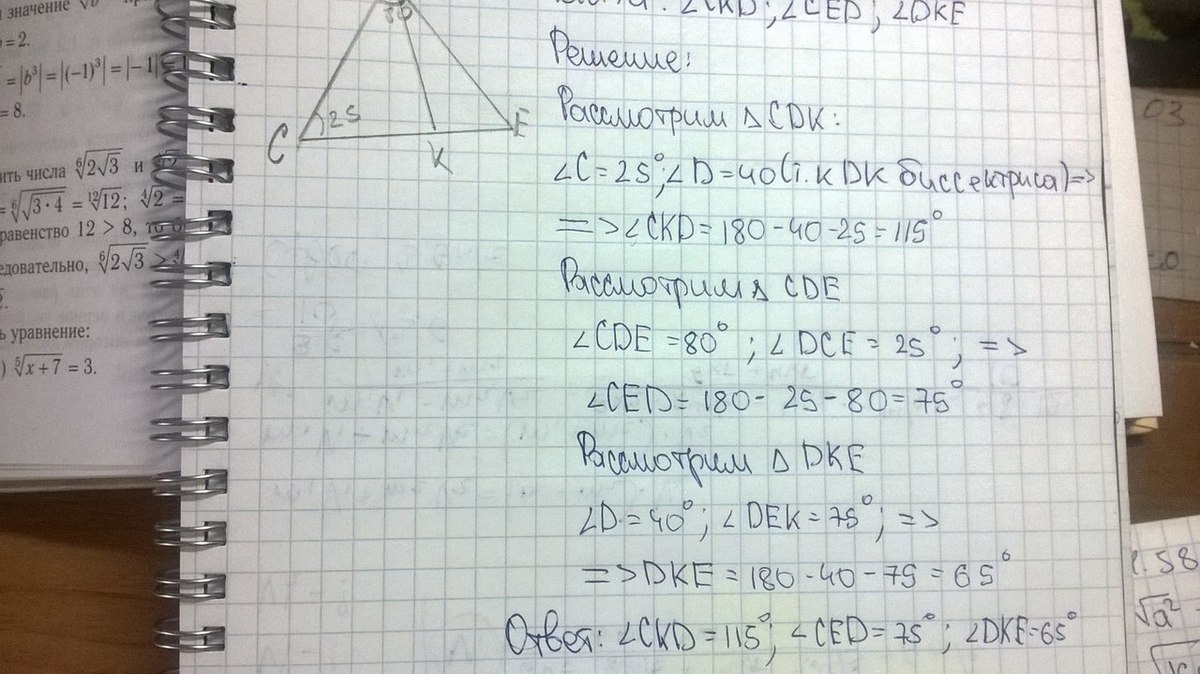 значение
= 2.
= |b³| = |(−1)³| = |−1|
= 8.
ить числа ⁶√2√3 и
= ⁶√√3·4 = ¹²√12; ⁴√2 =
равенство 12 > 8, то
едовательно, ⁶√2√3 >
ь уравнение:
) ⁵√x + 7 = 3.
C
25
K
E
∠CKD; ∠CED; ∠DKE
Решение:
Рассмотрим △ CDK:
∠C = 25°; ∠D = 40 (т.к DK биссектриса) =>
=> ∠CKD = 180 - 40 - 25 = 115°
Рассмотрим △ CDE
∠CDE = 80° ; ∠DCE = 25° ; =>
∠CED = 180 - 25 - 80 = 75°
Рассмотрим △ DKE
∠D = 40° ; ∠DEK = 75° ; =>
=> DKE = 180 - 40 - 75 = 65°
Ответ: ∠CKD = 115°; ∠CED = 75° ; ∠DKE = 65°
03
с.58
√a²